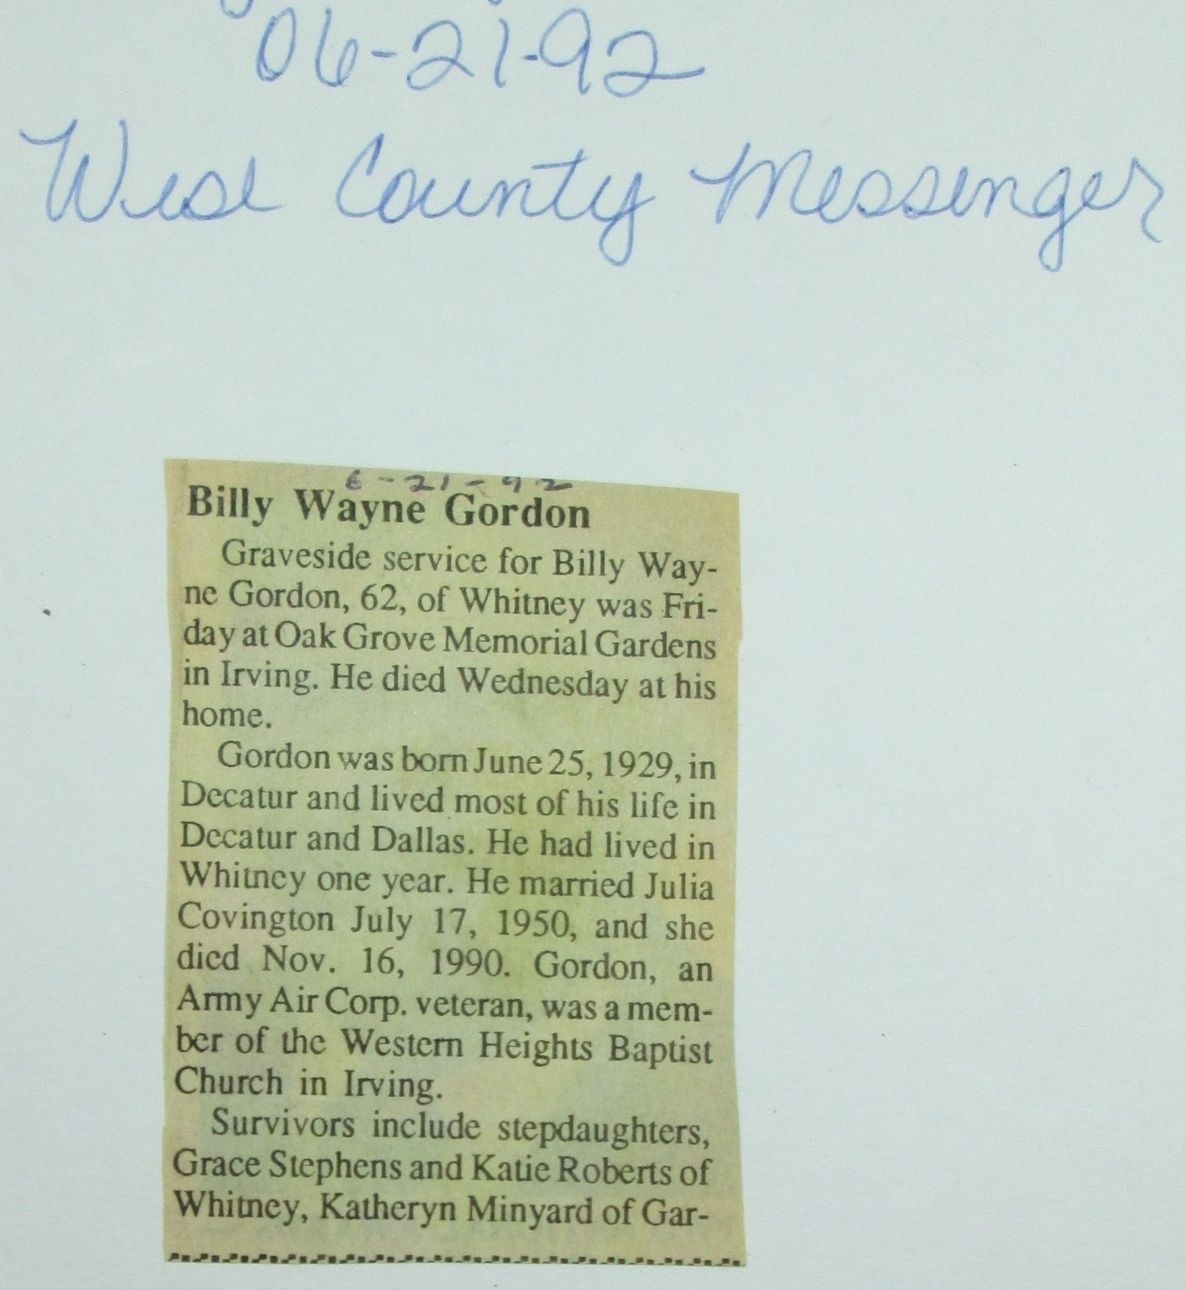 06-21-92
Wise County Messenger
6-21-92
Billy Wayne Gordon
Graveside service for Billy Way-
ne Gordon, 62, of Whitney was Fri-
day at Oak Grove Memorial Gardens
in Irving. He died Wednesday at his
home.
Gordon was born June 25, 1929, in
Decatur and lived most of his life in
Decatur and Dallas. He had lived in
Whitney one year. He married Julia
Covington July 17, 1950, and she
died Nov. 16, 1990. Gordon, an
Army Air Corp. veteran, was a mem-
ber of the Western Heights Baptist
Church in Irving.
Survivors include stepdaughters,
Grace Stephens and Katie Roberts of
Whitney, Katheryn Minyard of Gar-